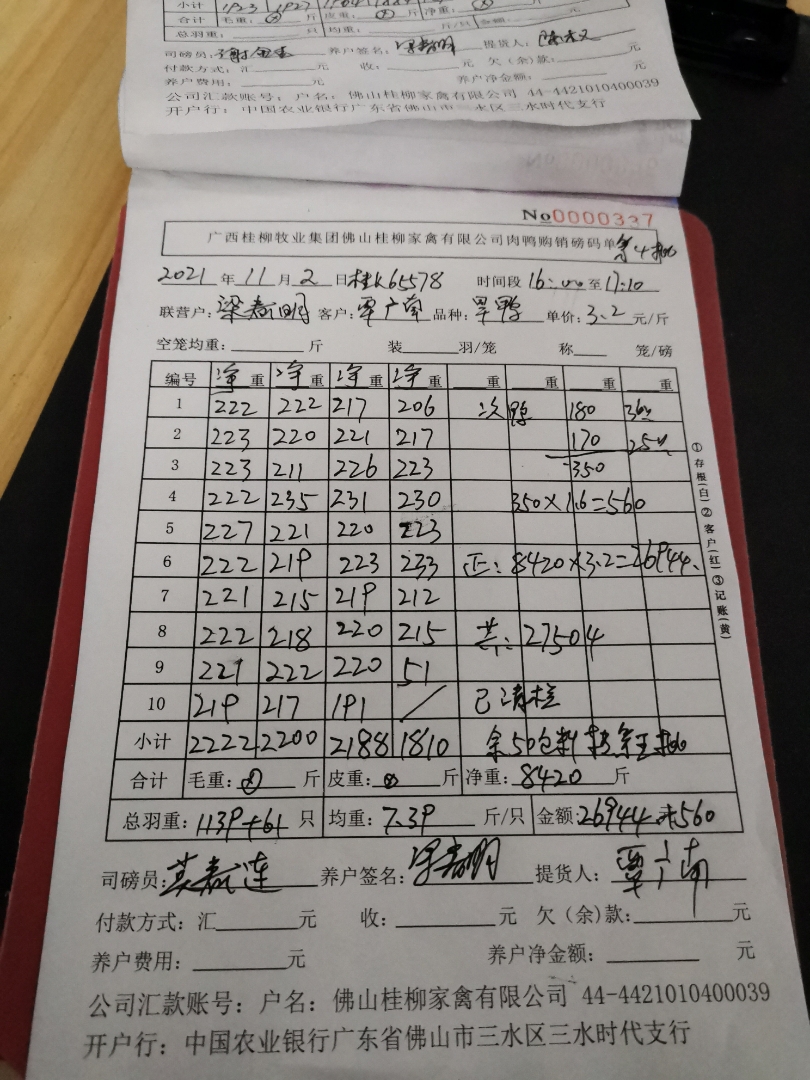 小计 1923 1927
合计 毛重: 斤 皮重: 斤 净重: 斤
总羽重: 只 均重: 斤/只 金额:
司磅员: 养户签名: 提货人:
付款方式:汇 元 收: 元 欠(余)款: 元
养户费用: 元 养户净金额: 元
公司汇款账号:户名:佛山桂柳家禽有限公司 44-4421010400039
开户行:中国农业银行广东省佛山市三水区三水时代支行
No0000337
广西桂柳牧业集团佛山桂柳家禽有限公司肉鸭购销磅码单
2021 年 11 月 2 日 桂K65578 时间段 16:00 至 17:10
联营户: 客户: 覃广南 品种: 单价: 3.2 元/斤
空笼均重: 斤 装 羽/笼 称 笼/磅
编号 净重 净重 净重 净重 重 重 重 重
1 222 222 217 206 次鸭 180
2 223 220 221 217 170
3 223 211 226 223 350
4 222 235 231 230 350×1.6=560
5 227 221 220 223
6 222 219 223 233 正: 8420×3.2=26944
7 221 215 219 212
8 222 218 220 215 共: 27504
9 221 222 220 51
10 219 217 191 /
小计 2222 2200 2188 1810
合计 毛重: 斤 皮重: 斤 净重: 8420 斤
总羽重: 1139+61 只 均重: 7.39 斤/只 金额: 26944+560
司磅员: 养户签名: 提货人: 覃广南
付款方式:汇 元 收: 元 欠(余)款: 元
养户费用: 元 养户净金额: 元
公司汇款账号:户名:佛山桂柳家禽有限公司 44-4421010400039
开户行:中国农业银行广东省佛山市三水区三水时代支行
①存根(白)②客户(红)③记账(黄)